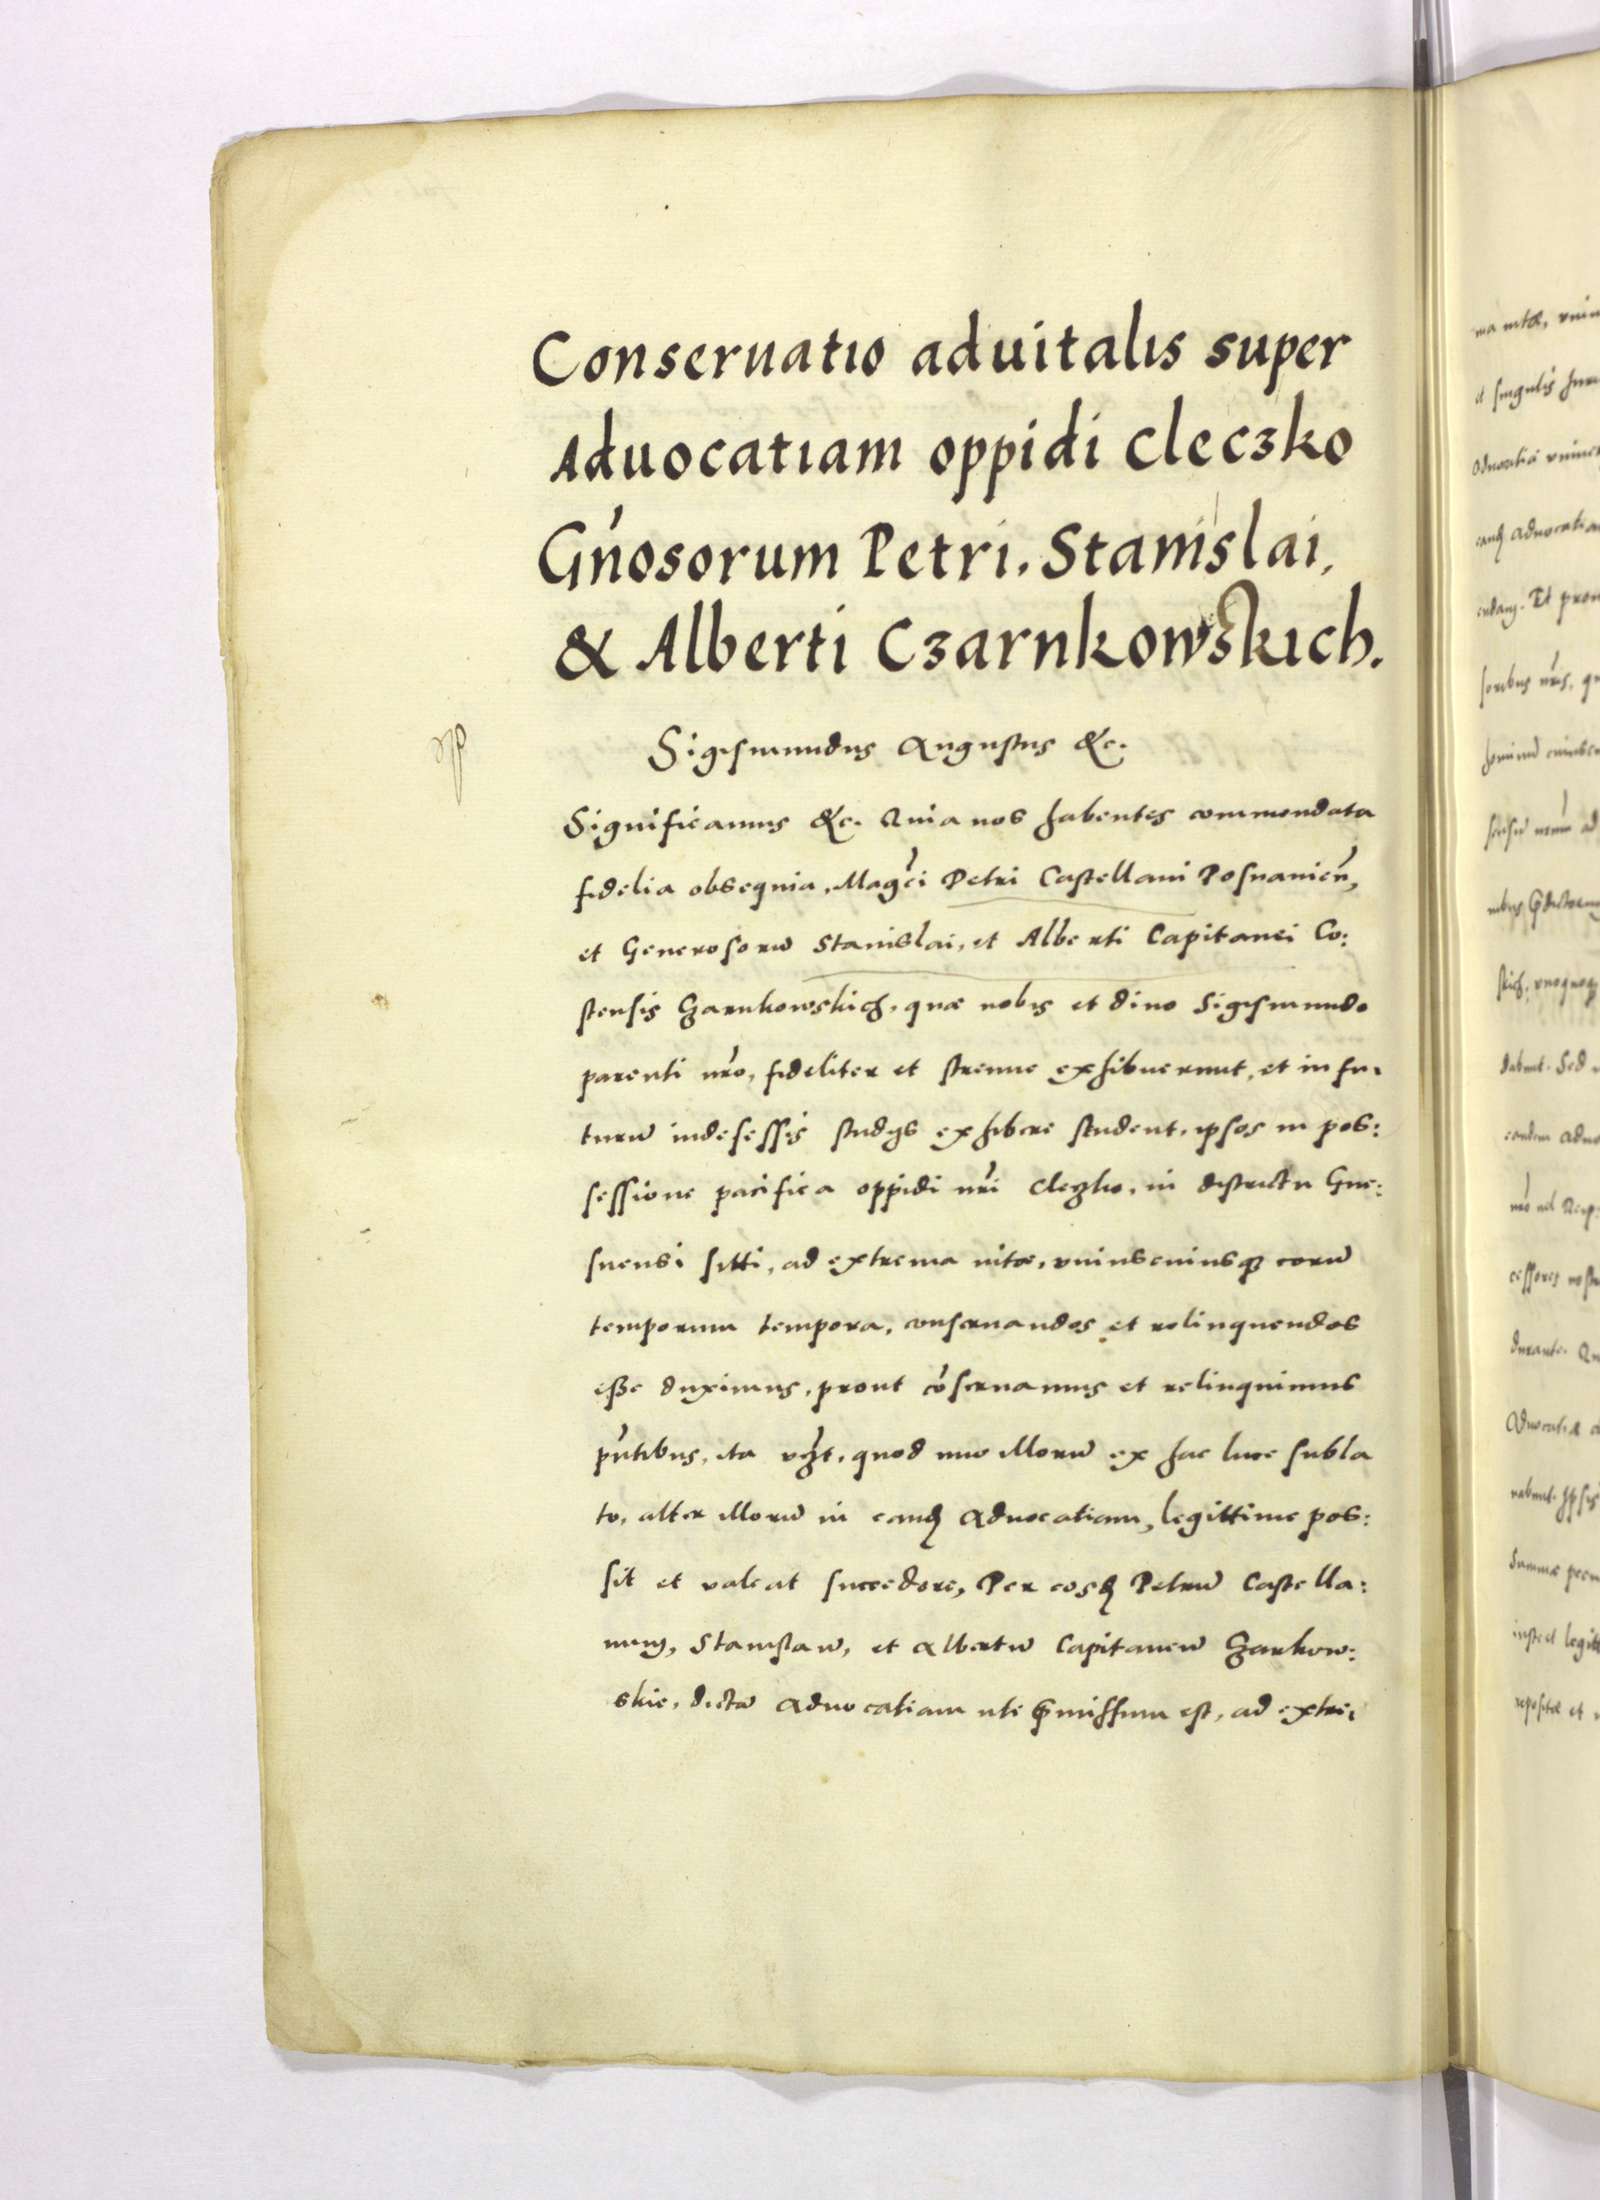 Conseruatio aduitalis super
Aduocatiam oppidi Cleczko
Gn̓osorum Petri, Stanislai,
& Alberti Czarnkowskich.
Sigismundus Augustus &c.
Significamus &c. Quia nos habentes commendata
fidelia obsequia, Magc̓i Petri Castellani Posnanien̓,
et Generosorū Stanislai, et Alberti Capitanei Co:
stensis Czarnkowskich, quæ nobis et diuo Sigismundo
parenti nr̓o, fideliter et strenue exhibuerunt, et in fu:
turū indefessis studijs exhibere student, ipsos in pos:
sessione pacifica oppidi nr̓i Cleczko, in districtu Gne:
snensi sitti, ad extrema uitæ, uniuscuiusqꝫ eorū
temporum tempora, conseruandos et relinquendos
eße duximus, prout cōseruamus et relinquimus
pn̓tibus, ita ut, quod uno illorū ex hac luce subla
to, alter illorū in eandꝫ Aduocatiam, legittime pos:
sit et ualeat succedere, Per eosdꝫ Petrū Castella:
num, Stanislaū, et Albertū Capitaneū Czarnkow:
skie, dictā Aduocatiam uti p̄missum est, ad extre:
ma uitæ,
et singulis
Aduocatiæ
eandꝫ Aduocatia
endam. Et prou
soribus nr̓is, qu
hominū
dabunt. Sed
eandem Aduo
cessores nostr
durante. Qu
Aduocatiæ
Summæ pecu
iuste et legitt
repositæ et